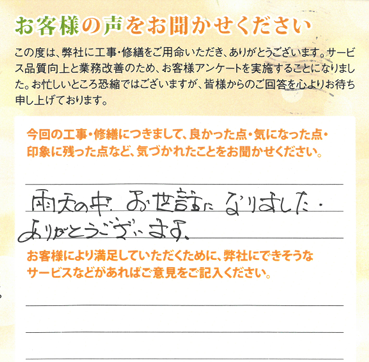 お客様の声をお聞かせください
この度は、弊社に工事・修繕をご用命いただき、ありがとうございます。サービ
ス品質向上と業務改善のため、お客様アンケートを実施することになりまし
た。お忙しいところ恐縮ではございますが、皆様からのご回答を心よりお待ち
申し上げております。
今回の工事・修繕につきまして、良かった点・気になった点・
印象に残った点など、気づかれたことをお聞かせください。
雨天の中 お世話に なりました・
ありがとうございます。
お客様により満足していただくために、弊社にできそうな
サービスなどがあればご意見をご記入ください。